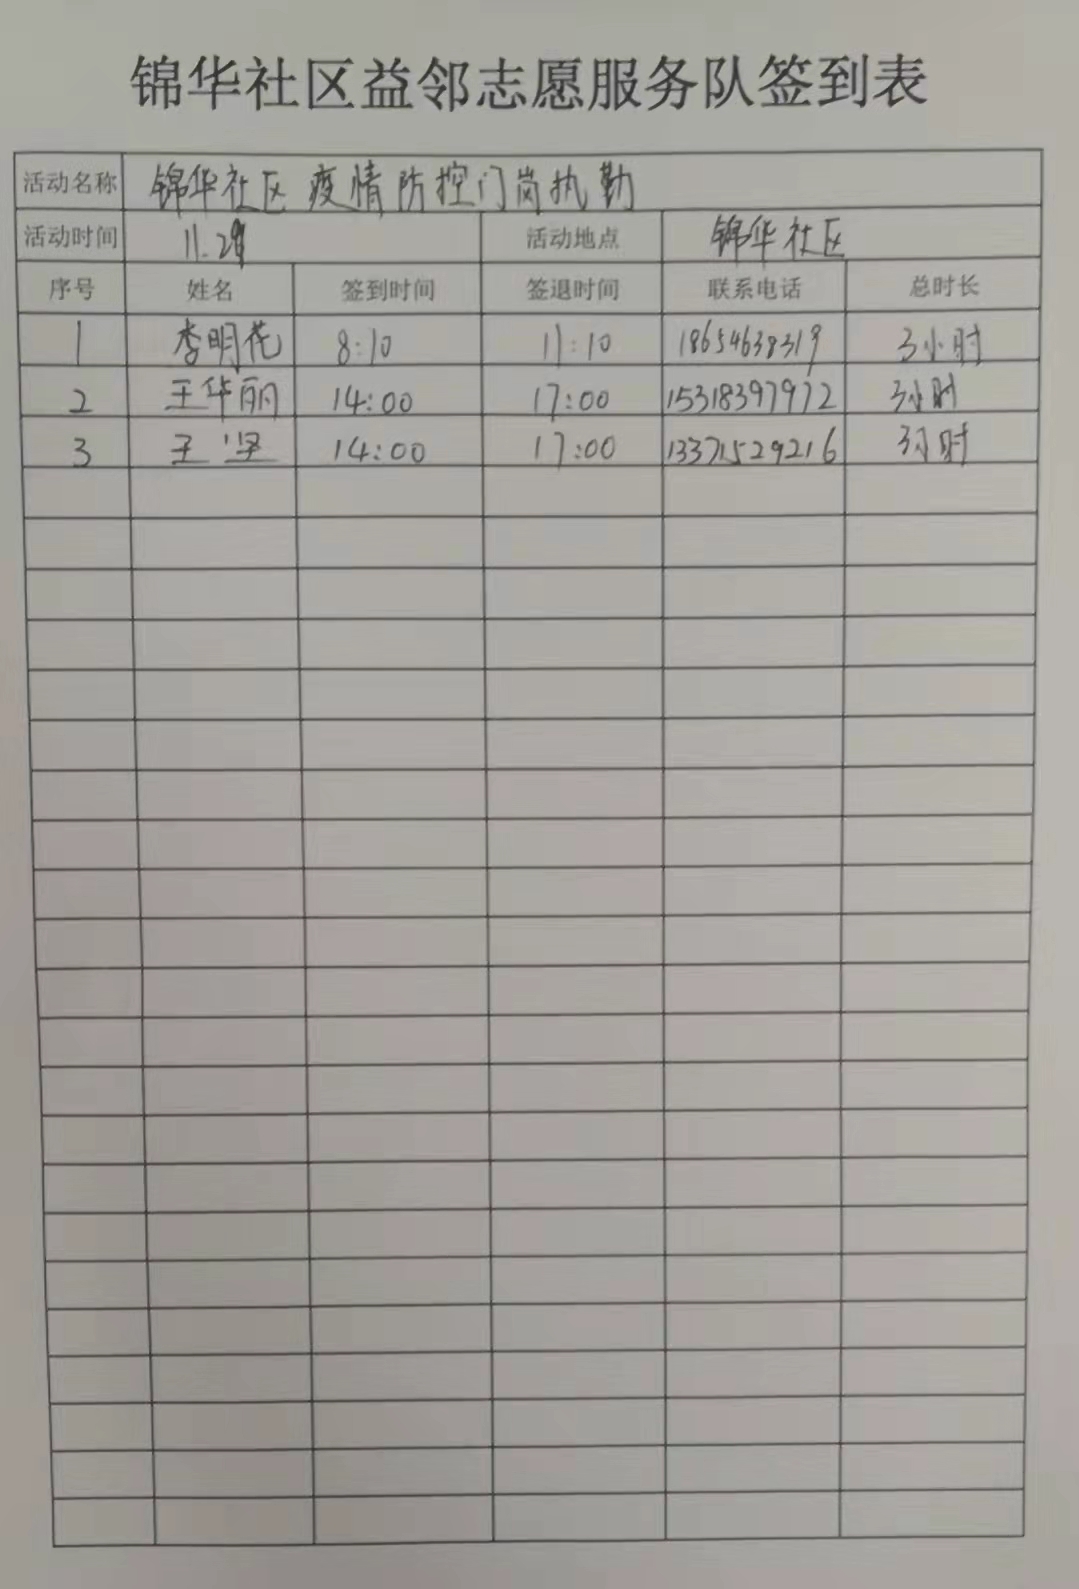 锦华社区益邻志愿服务队签到表
活动名称 锦华社区疫情防控门岗执勤
活动时间 11.29 活动地点 锦华社区
序号 姓名 签到时间 签退时间 联系电话 总时长
1 李明花 8:10 11:10 18654638319 3小时
2 王华丽 14:00 17:00 15318397972 3小时
3 王坚 14:00 17:00 13371529216 3小时